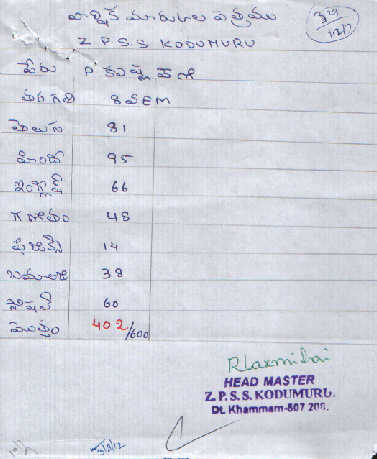 వార్షిక మార్కుల పత్రము
Z P S S KODUMURU
పేరు
తరగతి 8 EM
తెలుగు 81
హిందీ 95
ఇంగ్లీష్ 66
గణితం 48
ఫిజిక్స్ 14
38
సోషల్ 60
మొత్తం 402/600
R Laxmi bai
HEAD MASTER
Z.P.S.S. KODUMURU.
Dt. Khammam-507